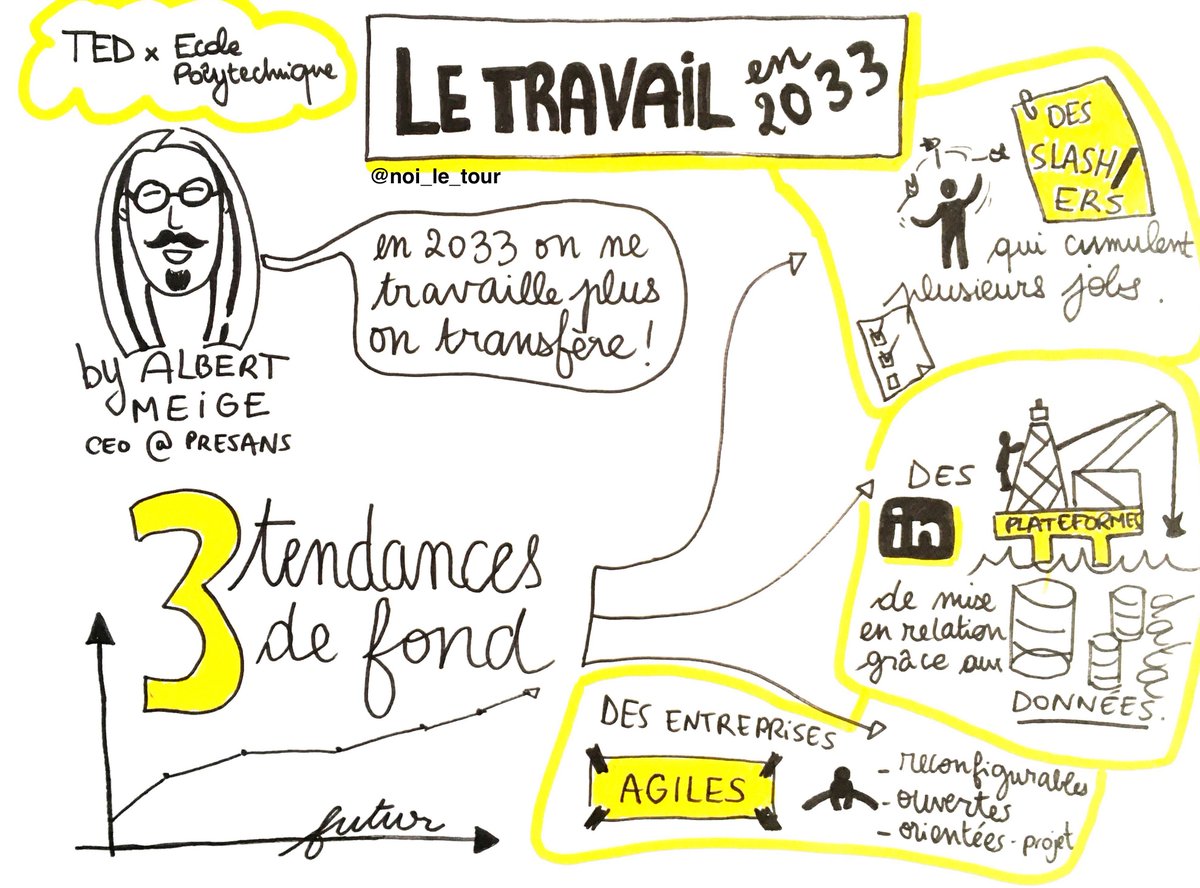 TED x Ecole
Polytechnique
LE TRAVAIL en
2033
@noi_le_tour
en 2033 on ne
travaille plus
on transfère !
by ALBERT
MEIGE
CEO @ PRESANS
3 tendances
de fond
futur
DES
SLASH/
ERS
qui cumulent
plusieurs jobs.
DES
in
PLATEFORMES
de mise
en relation
grâce aux
DONNÉES.
DES ENTREPRISES
AGILES
- reconfigurables
- ouvertes
- orientées-projet